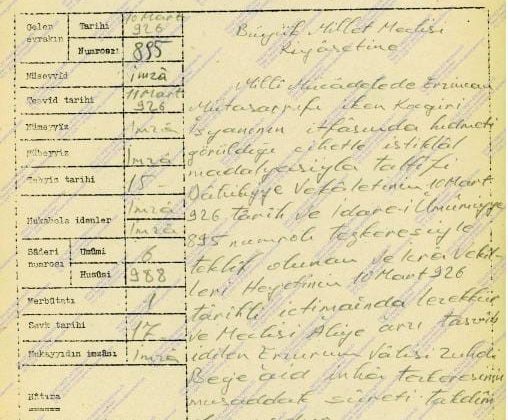 Gelen evrakın
Tarihi
10 Mart 926
Numrosu
895
Müsevvid
imzâ
Tesvid tarihi
11 Mart 926
Mümeyyiz
Imzâ
Mübeyyiz
Imzâ
Tebyiz tarihi
15 -
Mukabele idenler
Imzâ
Imzâ
Sâderi numrosı
Umûmi
6
Husûsi
988
Merbûtatı
1
Sevk tarihi
17
Mukayyidin imzâsı
Imzâ
Büyük Millet Meclisi
Riyâsetine
Milli Mücâdelede Erzincan
Mutasarrıfı iken Koçgiri
İsyanının itfâsında hidmeti
görüldiği cihetle istiklâl
madalyasiyla taltifi
Dâhiliyye Vekâletinin 10 Mart
926 tarih ve İdare-i Umûmiyye
895 numrolı tezkeresiyle
teklif olunan ve İcrâ Vekil-
leri Heyetinin 10 Mart 926
tarihli ictimaında tezekkür
ve Meclisi Âliye arzı tasvib
idilen Erzurum Vâlisi Zühdi
Beğe âid inha tezkeresinin
musaddak sûreti takdim